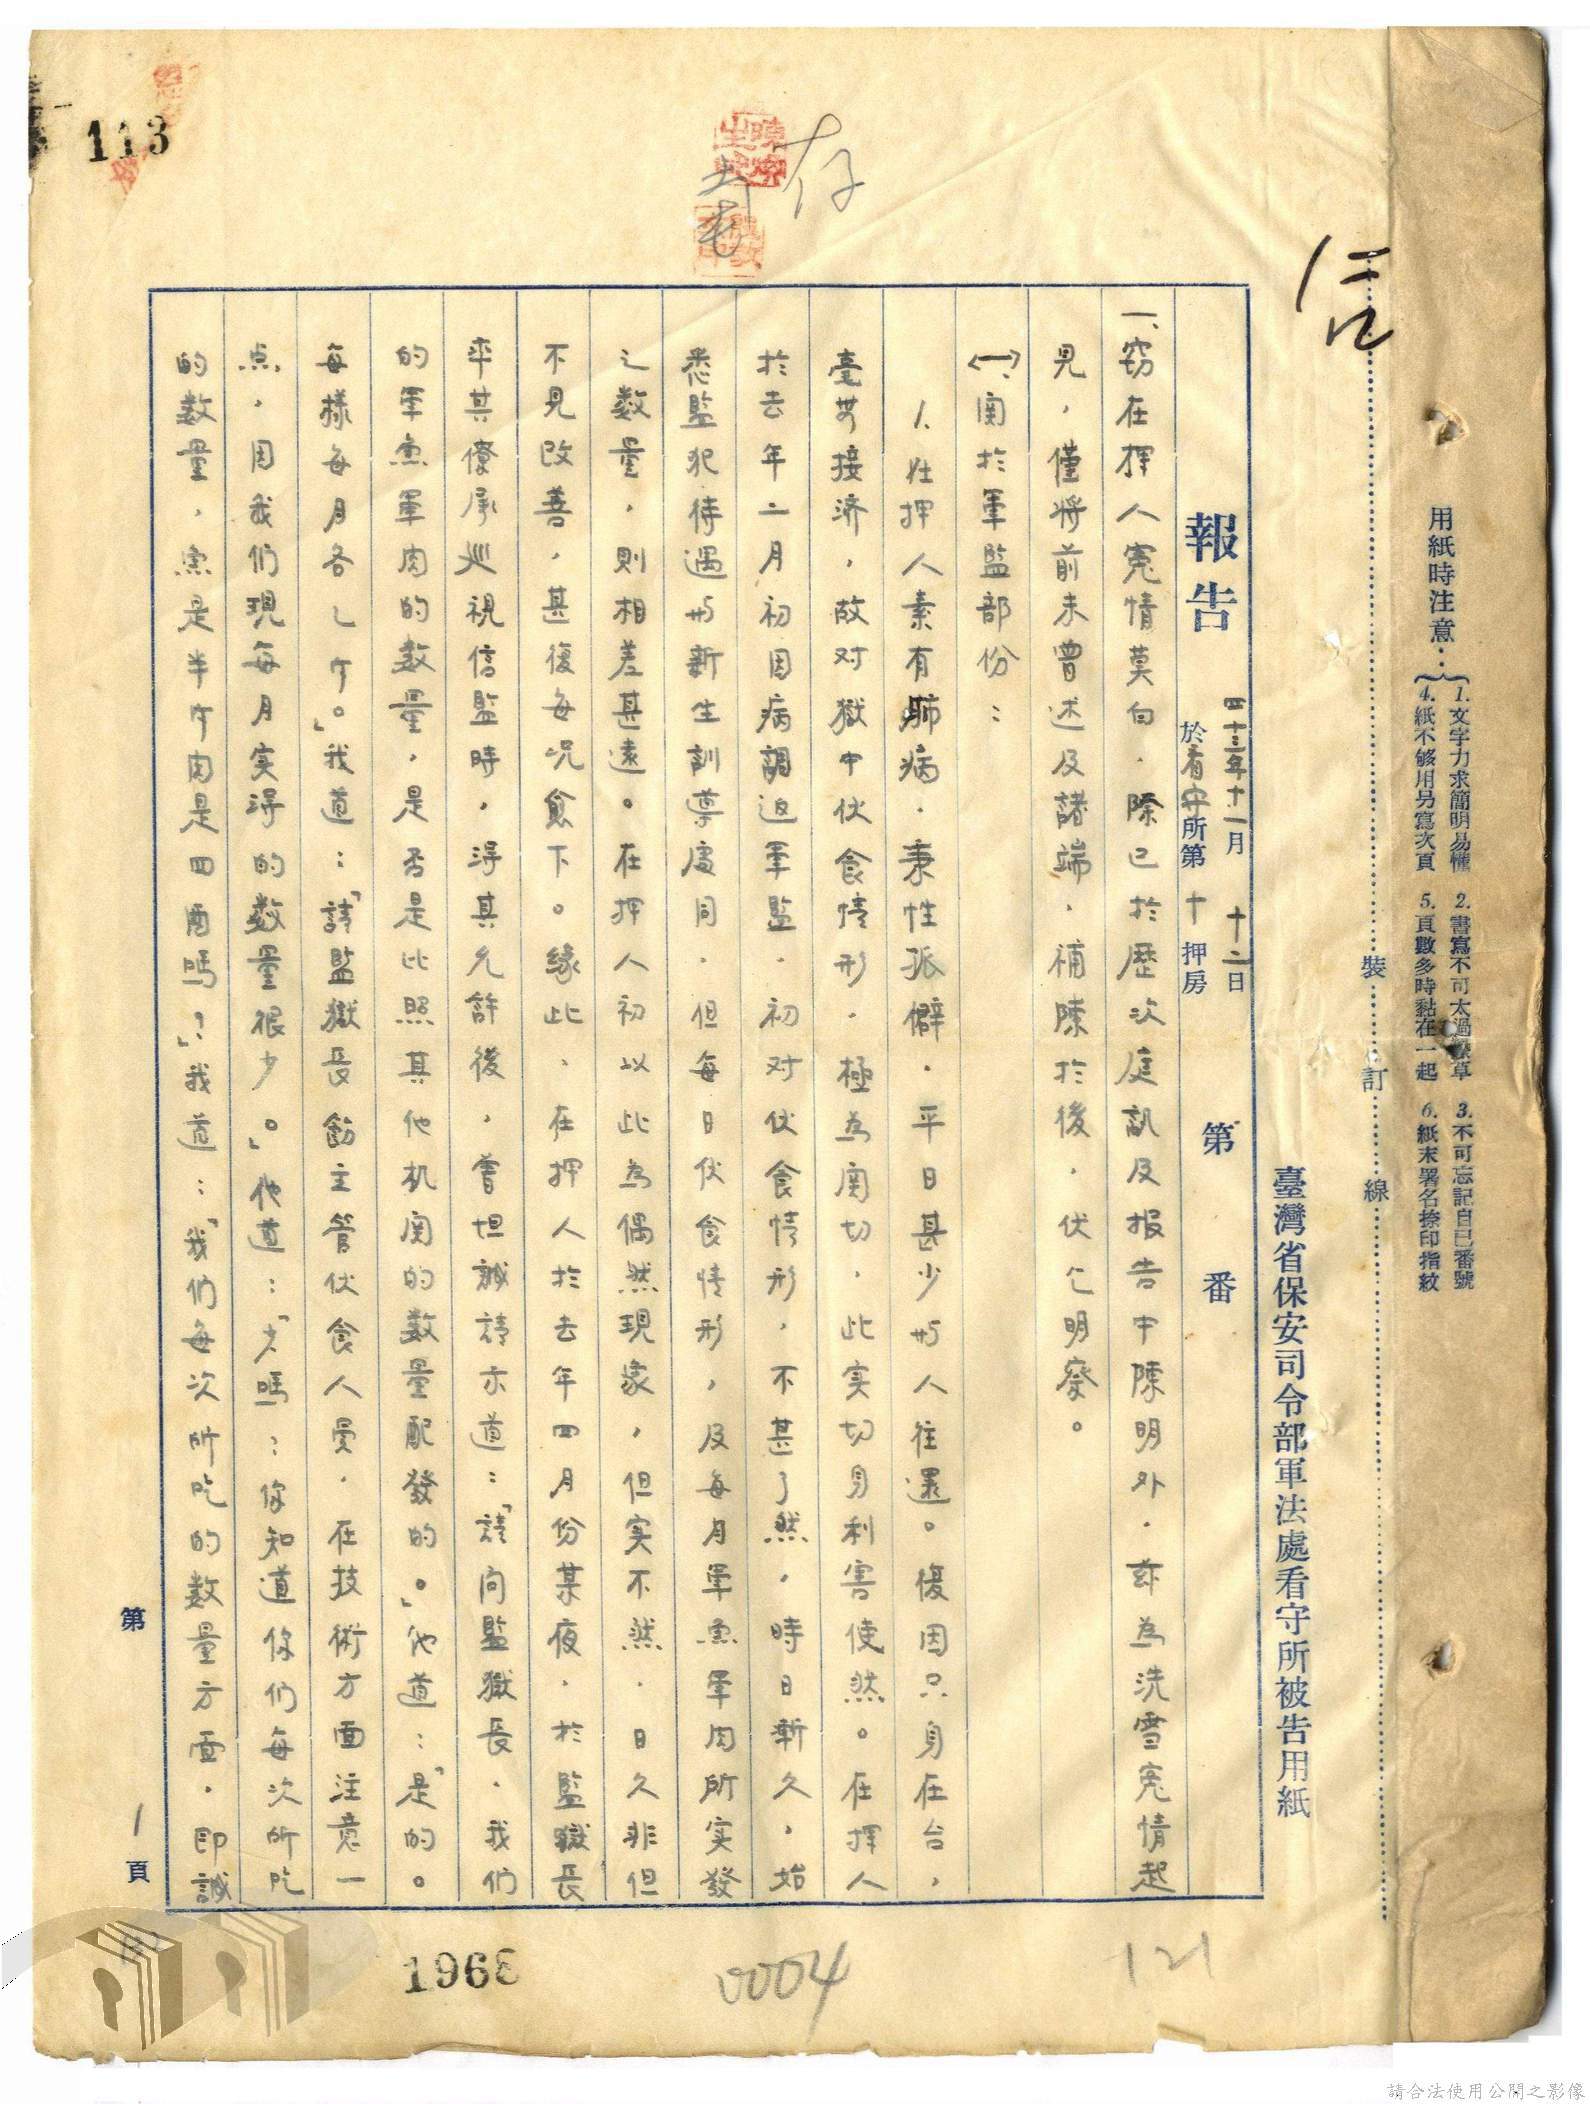 用紙時注意：
1. 文字力求簡明易懂 2. 書寫不可太過潦草 3. 不可忘記自已番號
4. 紙不够用另寫次頁 5. 頁數多時黏在一起 6. 紙末署名捺印指紋
裝訂線
臺灣省保安司令部軍法處看守所被告用紙
報告 四十三年十一月十二日 第 番
於看守所第十押房
一、窃在押人寃情莫白．除已於歷次庭訊及报告中陳明外．茲為洗雪寃情起
見，僅將前未曾述及諸端，補陳於後，伏乞明察。
(一)、関於軍監部份：
1. 在押人素有肺病．秉性孤僻．平日甚少与人往還。復因只身在台，
毫無接济，故对獄中伙食情形．極為関切，此实切身利害使然。在押人
於去年二月初因病調返軍監．初对伙食情形，不甚了然，時日漸久，始
悉監犯待遇与新生訓導處同．但每日伙食情形，及每月軍魚軍肉所实發
之数量，則相差甚遠。在押人初以此為偶然現象，但实不然．日久非但
不見改善，甚復每況愈下。緣此，在押人於去年四月份某夜，於監獄長
率其僚承巡視信監時，得其允許後，嘗坦誠請示道：「請问監獄長，我们
的軍魚軍肉的数量，是否是比照其他机関的数量配發的。」他道：「是的。
每樣每月各乚斤。」我道：「請監獄長飭主管伙食人員，在技術方面注意一
点，因我们現每月实得的数量很少。」他道：「少嗎：你知道你们每次所吃
的数量，魚是半斤肉是四両嗎？」我道：「我们每次所吃的数量方面，即誠
第1頁
存
113
1968
0004
121
請合法使用公開之影像